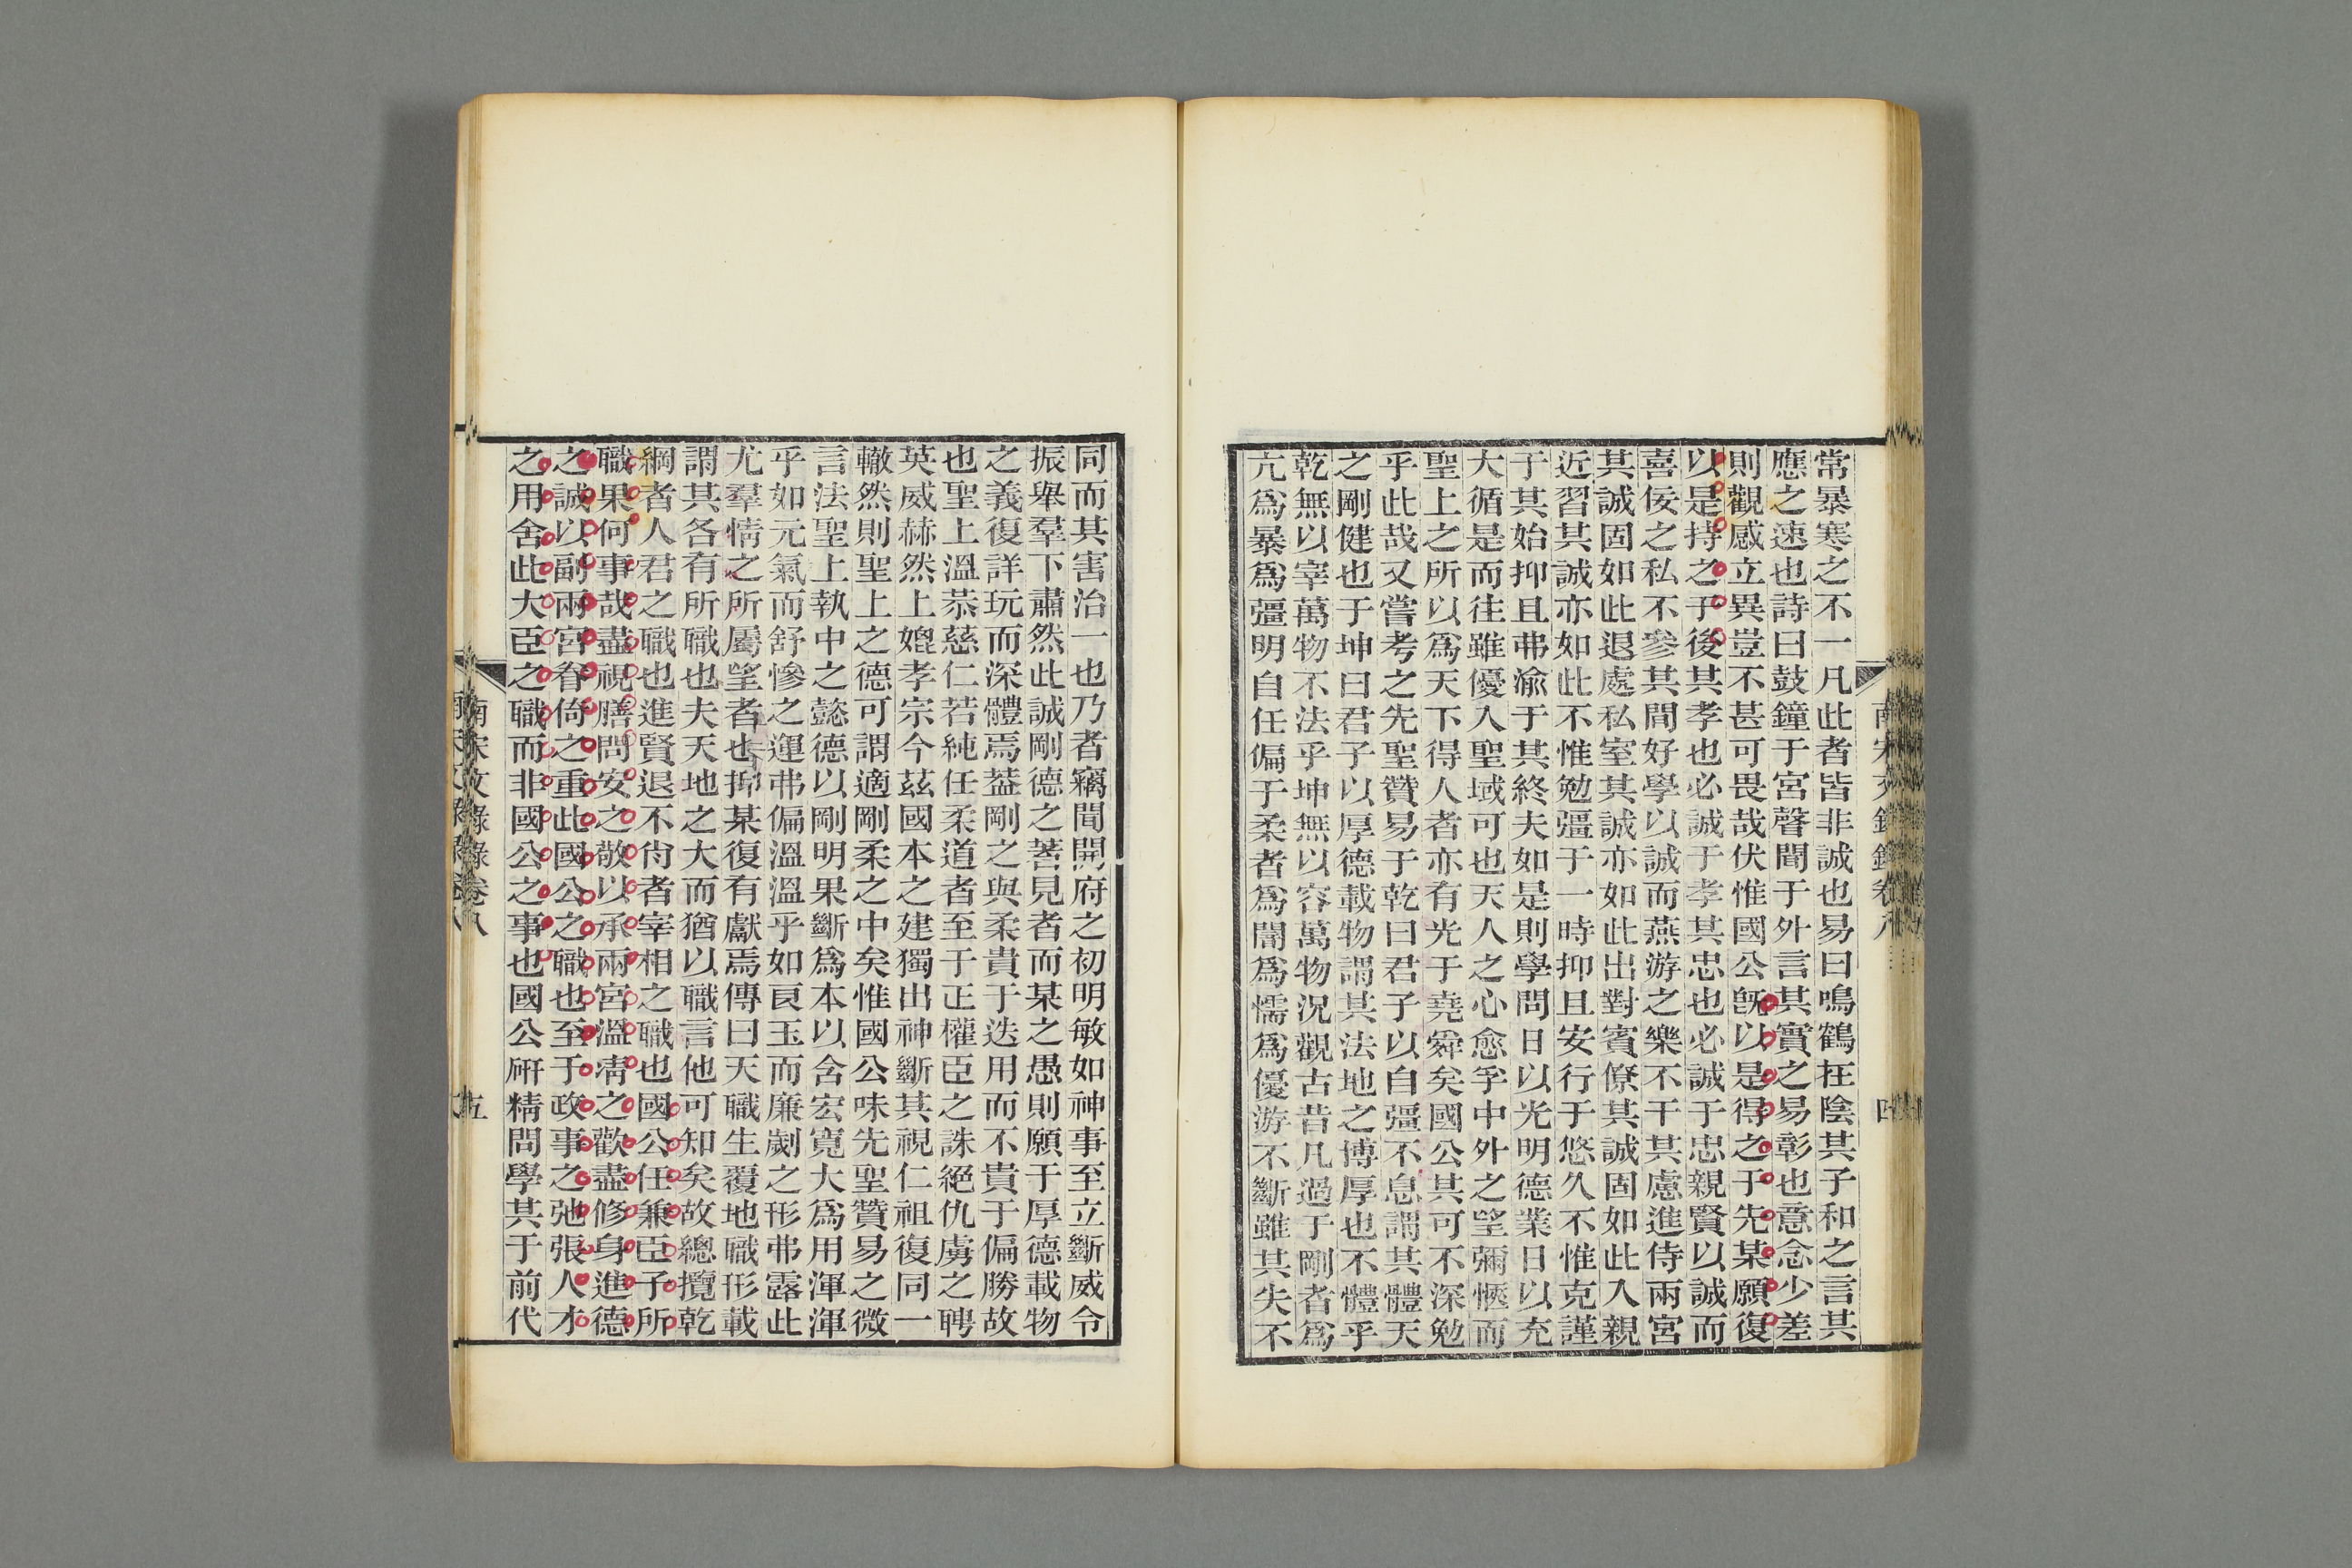 常暴寒之不一凡此者皆非誠也易曰鳴鶴在陰其子和之言其
應之速也詩曰鼓鐘于宮聲聞于外言其實之易彰也意念少差
則觀感立異豈不甚可畏哉伏惟國公旣以是得之于先某願復
以是持之于後其孝也必誠于孝其忠也必誠于忠親賢以誠而
喜佞之私不參其間好學以誠而燕游之樂不干其慮進侍兩宮
其誠固如此退處私室其誠亦如此出對賓僚其誠固如此入親
近習其誠亦如此不惟勉彊于一時抑且安行于悠久不惟克謹
于其始抑且弗渝于其終夫如是則學問日以光明德業日以充
大循是而往雖優入聖域可也天人之心愈孚中外之望彌愜而
聖上之所以爲天下得人者亦有光于堯舜矣國公其可不深勉
乎此哉又嘗考之先聖贊易于乾曰君子以自彊不息謂其體天
之剛健也于坤曰君子以厚德載物謂其法地之博厚也不體乎
乾無以宰萬物不法乎坤無以容萬物況觀古昔凡過于剛者爲
亢爲暴爲彊明自任偏于柔者爲闇爲懦爲優游不斷雖其失不
南宋文錄錄卷八 四
同而其害治一也乃者竊聞開府之初明敏如神事至立斷威令
振舉羣下肅然此誠剛德之著見者而某之愚則願于厚德載物
之義復詳玩而深體焉葢剛之與柔貴于迭用而不貴于偏勝故
也聖上溫恭慈仁若純任柔道者至于正權臣之誅絕仇虜之聘
英威赫然上媲孝宗今茲國本之建獨出神斷其視仁祖復同一
轍然則聖上之德可謂適剛柔之中矣惟國公味先聖贊易之微
言法聖上執中之懿德以剛明果斷爲本以含宏寬大爲用渾渾
乎如元氣而舒慘之運弗偏溫溫乎如良玉而廉劌之形弗露此
尤羣情之所屬望者也抑某復有獻焉傳曰天職生覆地職形載
謂其各有所職也夫天地之大而猶以職言他可知矣故總攬乾
綱者人君之職也進賢退不肖者宰相之職也國公任兼臣子所
職果何事哉盡視膳問安之敬以承兩宮溫凊之歡盡修身進德
之誠以副兩宮眷倚之重此國公之職也至于政事之弛張人才
之用舍此大臣之職而非國公之事也國公硏精問學其于前代
南宋文錄錄卷八 五